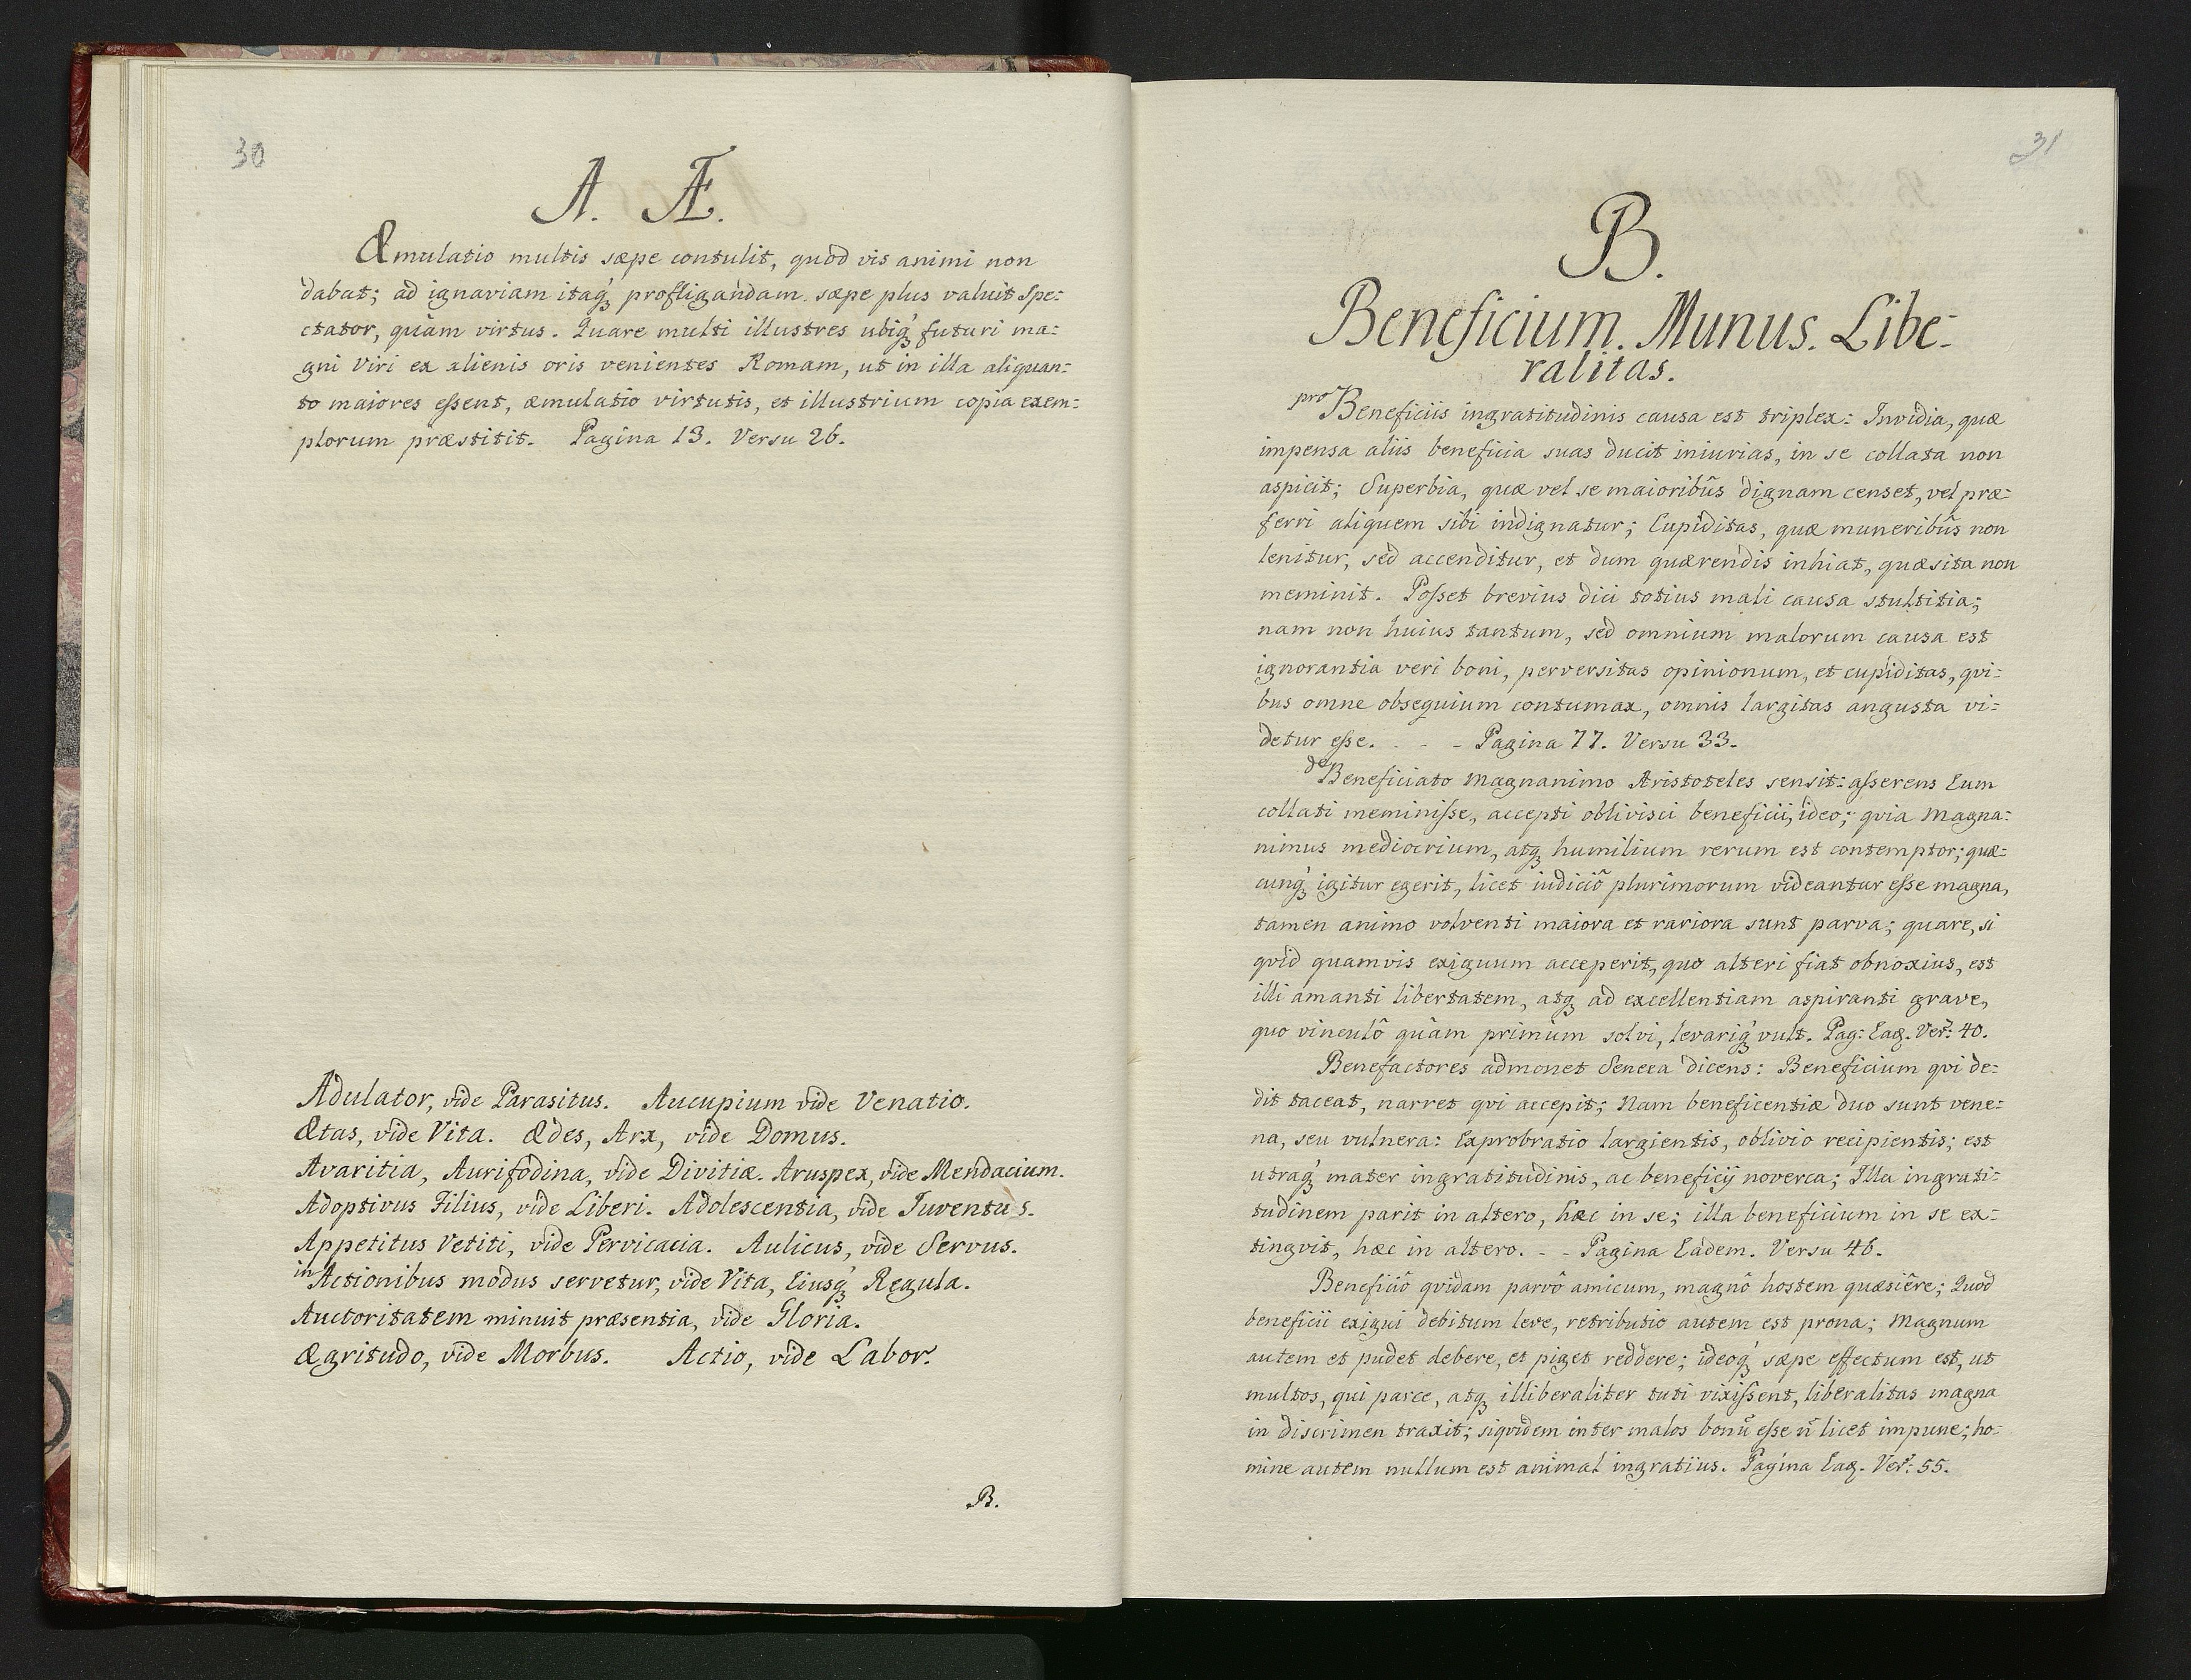 30
A. Æ.
Æmulatio multis sæpe contulit, quod vis animi non
dabat; ad ignaviam itaq́ꝫ profligandam sæpe plus valuit Spe:
ctator, quàm virtus. Quare multi illustres ubiq́ꝫ futuri ma:
gni Viri ex alienis oris venientes Romam, ut in illa aliquan:
to maiores eſsent, æmulatio virtutis, et illustrium copia exem:
plorum præstitit. Pagina 13. Versu 26.
Adulator, vide Parasitus. Aucupium vide Venatio.
Ætas, vide Vita. Ædes, Arx, vide Domus.
Avaritia, Aurifodina, vide Divitiæ. Aruspex, vide Mendacium.
Adoptivus Filius, vide Liberi. Adolescentia, vide Iuventus.
Appetitus Vetiti, vide Pervicacia. Aulicus, vide Servus.
in Actionibus modus servetur, vide Vita, Eiusq́ꝫ Regula.
Auctoritatem minuit præsentia, vide Gloria.
Ægritudo, vide Morbus. Actio, vide Labor.
B.
31
B.
Beneficium. Munus. Libe:
ralitas.
pro Beneficiis ingratitudinis causa est triplex: Invidia, quæ
impensa aliis beneficia suas ducit iniurias, in se collata non
aspicit; Superbia, quæ vel se maioribûs dignam censet, vel præ:
ferri aliquem sibi indignatur; Cupiditas, quæ muneribûs non
lenitur, sed accenditur, et dum quærendis inhiat, quæsita non
meminit. Poſset brevius dici totius mali causa stultitia;
nam non huius tantum, sed omnium malorum causa est
ignorantia veri boni, perversitas opinionum, et cupiditas, qvi:
bus omne obsequium contumax, omnis largitas angusta vi:
detur eſse. - - - Pagina 77. Versu 33.
de Beneficiato Magnanimo Aristoteles sensit: aſserens Eum
collati meminiſse, accepti oblivisci beneficii, ideo; qvia Magna:
nimus mediocrium, atqꝫ humilium rerum est contemptor; quæ:
cunq́ꝫ igitur egerit, licet iudiciô plurimorum videantur eſse magna,
tamen animo volventi maiora et rariora sunt parva; quare, si
qvid quamvis exiguum acceperit, quo alteri fiat obnoxius, est
illi amanti libertatem, atqꝫ ad excellentiam aspiranti grave,
quo vinculô quàm primùm solvi, levariq́ꝫ vult. Pag: Eaꝫ. Ver: 40.
Benefactores admonet Seneca dicens: Beneficium qvi de:
dit taceat, narret qvi accepit; Nam beneficentiæ duo sunt vene:
na, seu vulnera: Exprobratio largientis, oblivio recipientis; est
utraq́ꝫ mater ingratitudinis, ac beneficij noverca; Illa ingrati:
tudinem parit in altero, hæc in se; illa beneficium in se ex:
tingvit, hæc in altero. - - Pagina Eadem. Versu 46.
Beneficiô qvidam parvô amicum, magnô hostem quæsiêre; Quod
beneficii exigui debitum leve, retributio autem est prona; Magnum
autem et pudet debere, et piget reddere; ideoq́ꝫ sæpe effectum est, ut
multos, qui parce, atqꝫ illiberaliter tuti vixiſsent, liberalitas magna
in discrimen traxit; siqvidem inter malos bonū eſse n̄ licet impune; ho:
mine autem nullum est animal ingratius. Pagina Eaꝫ. Ver: 55.